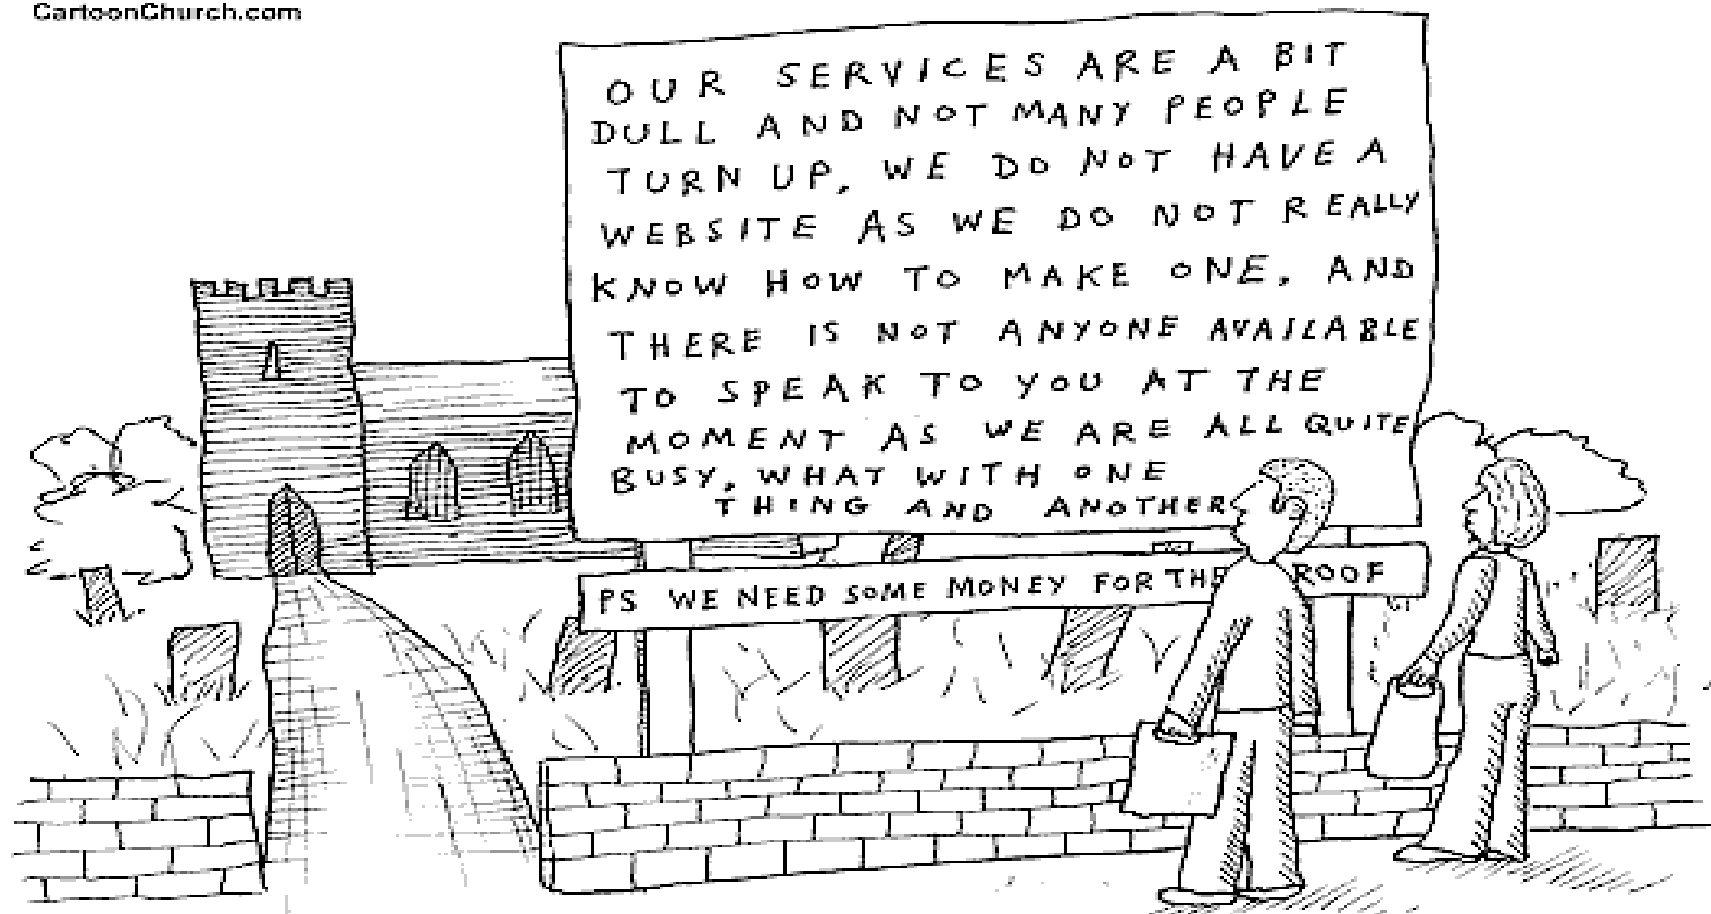 CartoonChurch.com
OUR SERVICES ARE A BIT
DULL AND NOT MANY PEOPLE
TURN UP. WE DO NOT HAVE A
WEBSITE AS WE DO NOT REALLY
KNOW HOW TO MAKE ONE. AND
THERE IS NOT ANYONE AVAILABLE
TO SPEAK TO YOU AT THE
MOMENT AS WE ARE ALL QUITE
BUSY, WHAT WITH ONE
THING AND ANOTHER
PS WE NEED SOME MONEY FOR THE ROOF